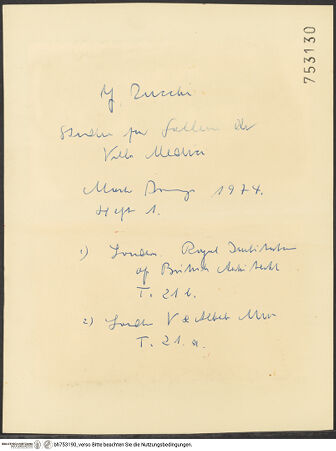 753130
J. Zucchi
Studien zur Galleria der
Villa Medici
Master Drawings 1974.
Heft 1.
1) London. Royal Institute
of British Architect
T. 21 b.
2) London V & Albert Mus
T. 21. a.
bh753130_verso Bitte beachten Sie die Nutzungsbedingungen.